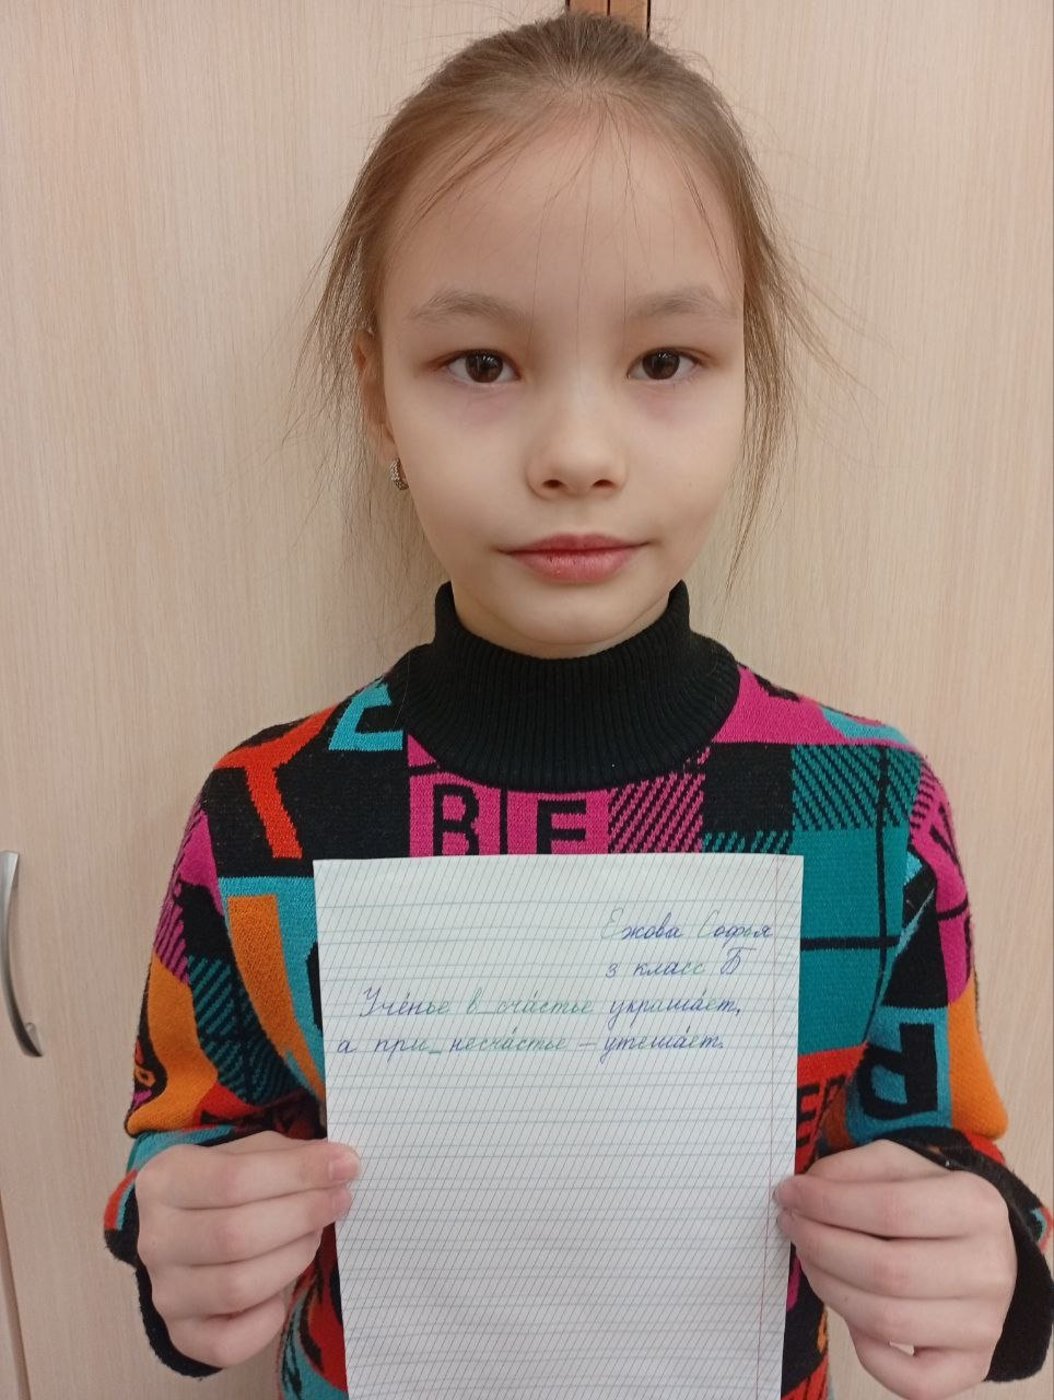 BE
Ежова Софья
3 класс Б
Уче́нье в_сча́стье украша́ет,
а при_несча́стье – утеша́ет.